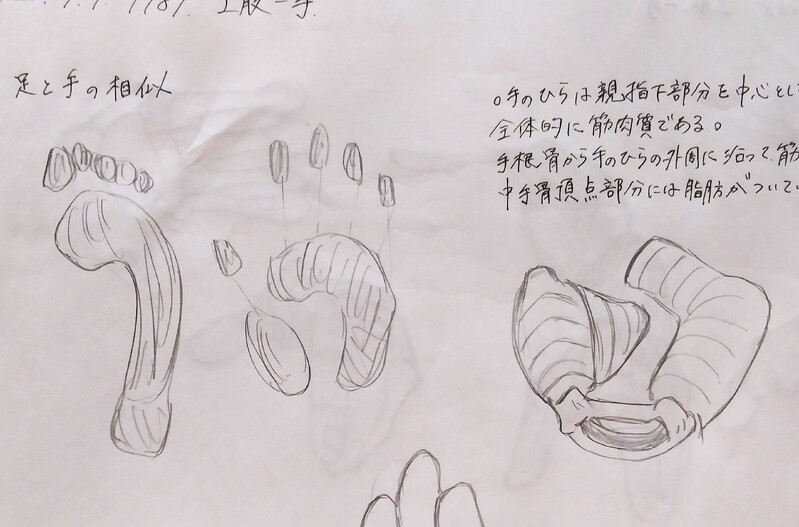 上肢－手.
足と手の相似
○手のひらは親指下部分を中心とし
全体的に筋肉質である。
手根骨から手のひらの外周に沿って、筋
中手骨頂点部分には脂肪がついてい